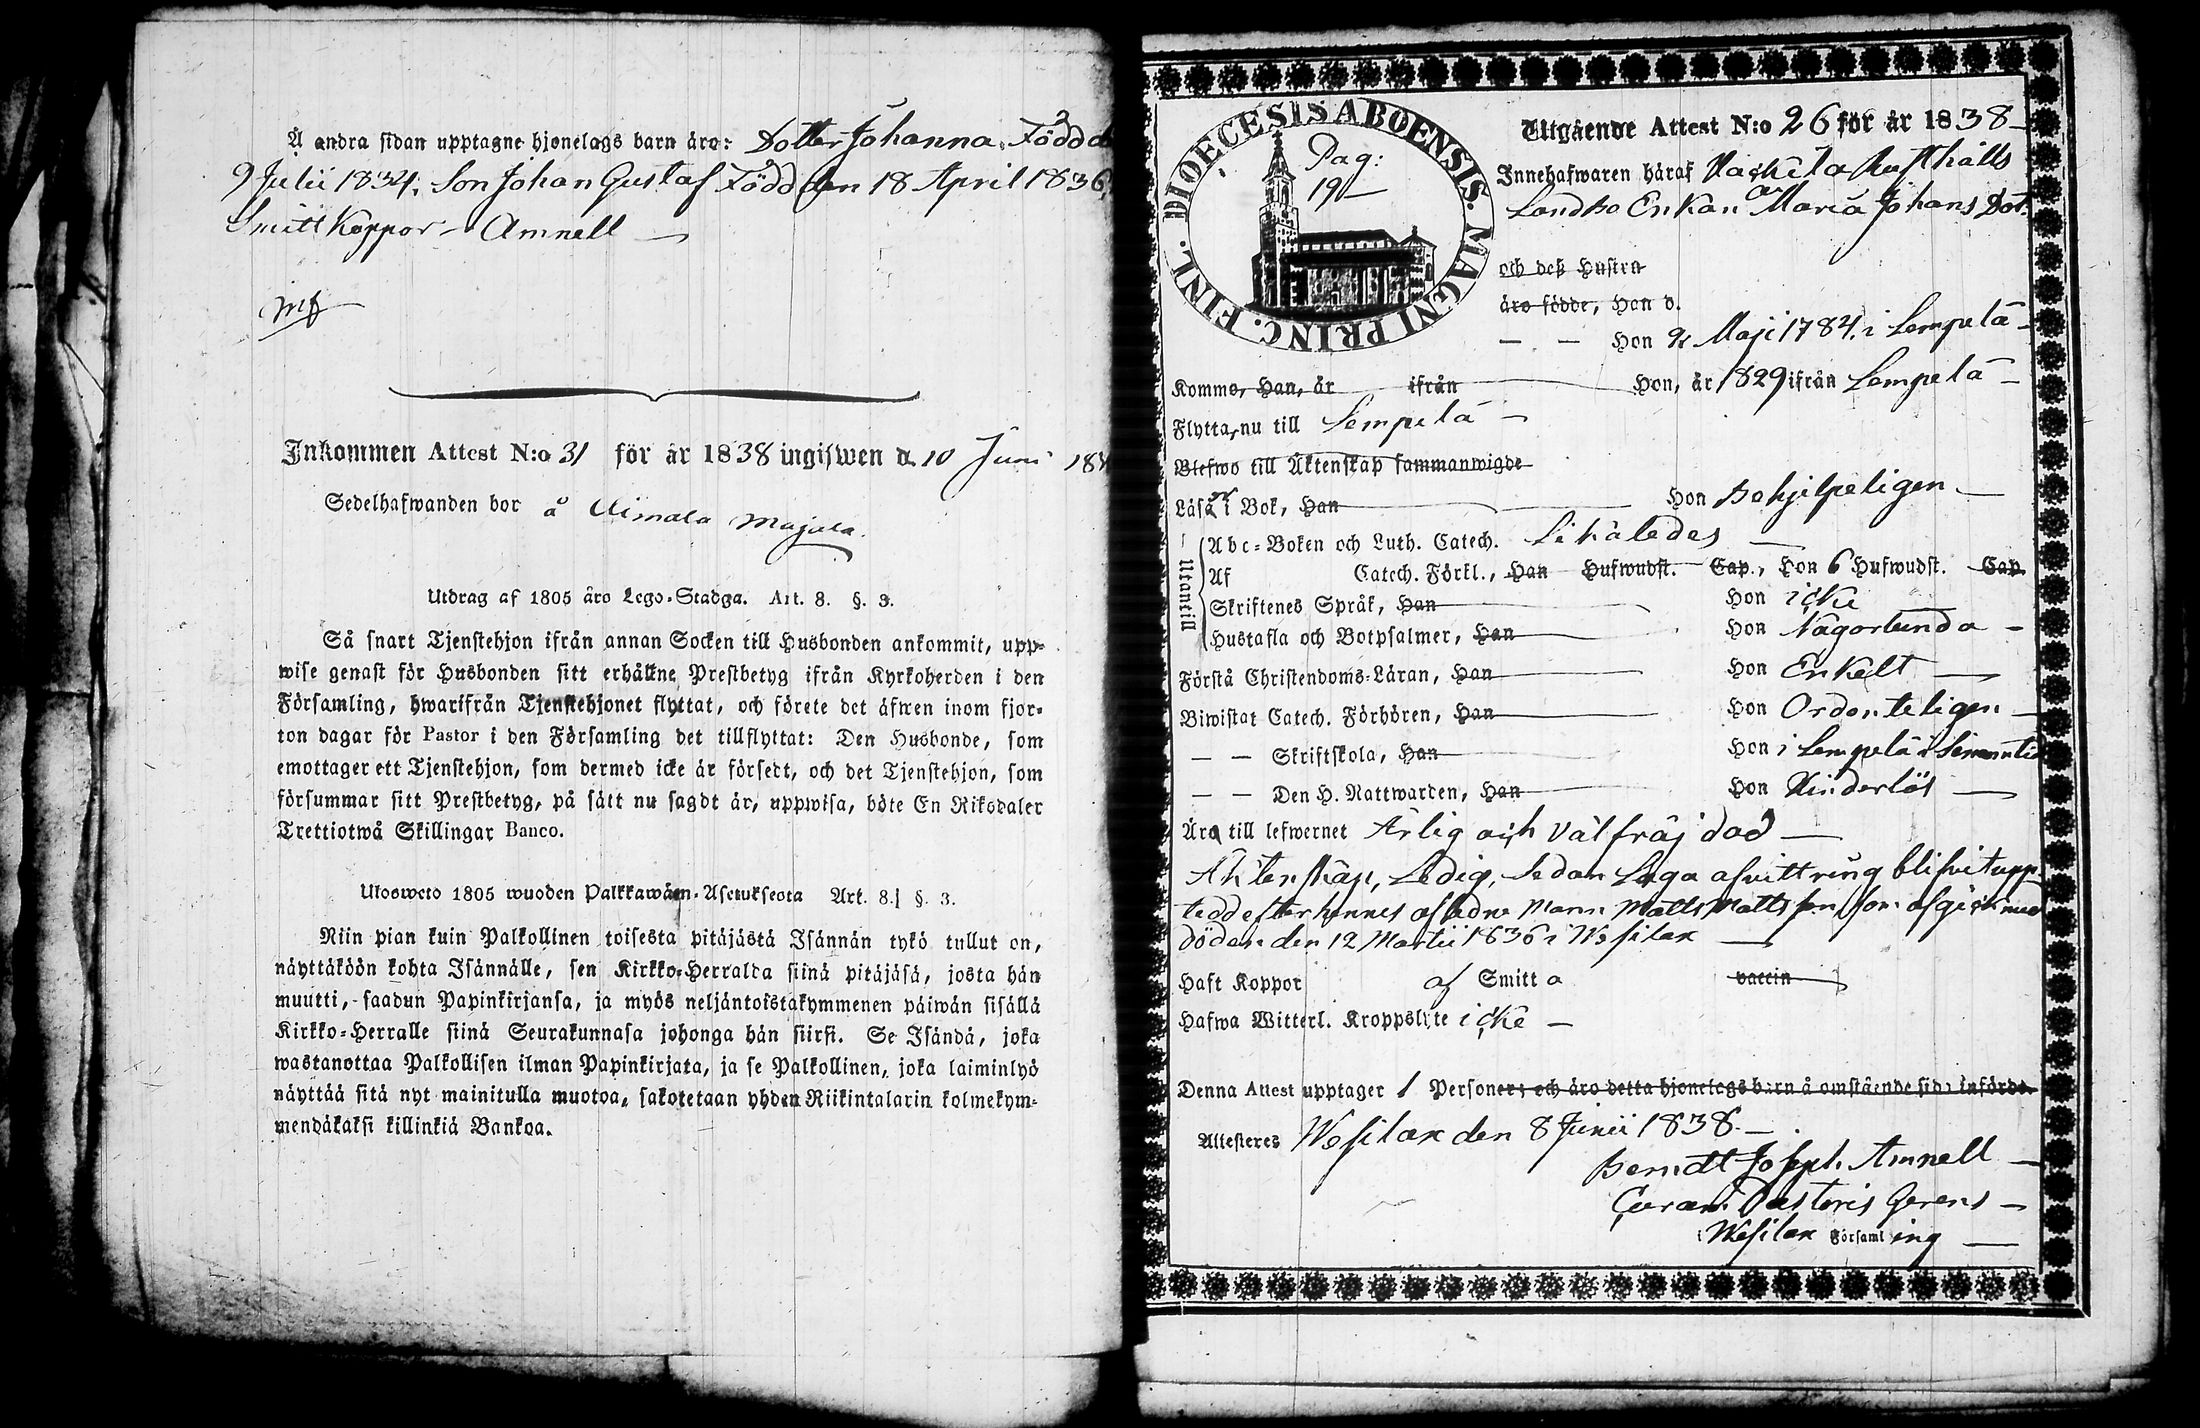 Å andra sidan upptagne hjonelags barn äro: Dotter Johanna Född d
9 Julii 1834. Son Johan Gustaf Född den 18 April 1836,
Smitt Koppor - Amnell
Inkommen Attest N:o 31 för år 1838 ingifwen d. 10 Juni 18
Sedelhafwanden bor å Uimala Majala.
Utdrag af 1805 års Lego-Stadga. Art. 8. §. 3.
Så snart Tjenstehjon ifrån annan Socken till Husbonden ankommit, upp-
wise genast för Husbonden sitt erhållne Prestbetyg ifrån Kyrkoherden i den
Församling, hwarifrån Tjenstehjonet flyttat, och förete det äfwen inom fjor-
ton dagar för Pastor i den Församling det tillflyttat: Den Husbonde, som
emottager ett Tjenstehjon, som dermed icke är försedt, och det Tjenstehjon, som
försummar sitt Prestbetyg, på sätt nu sagdt är, uppwisa, böte En Riksdaler
Trettiotwå Skillingar Banco.
Ulosweto 1805 wuoden Palkkawäen-Asetuksesta Art. 8. §. 3.
Niin pian kuin Palkollinen toisesta pitäjästä Isännän tykö tullut on,
näyttäköön kohta Isännälle, sen Kirkko-Herralda siinä pitäjäsä, josta hän
muutti, saadun Papinkirjansa, ja myös neljäntoistakymmenen päiwän sisällä
Kirkko-Herralle siinä Seurakunnasa johonga hän siirsi. Se Isändä, joka
wastanottaa Palkollisen ilman Papinkirjata, ja se Palkollinen, joka laiminlyö
näyttää sitä nyt mainitulla muotoa, sakotetaan yhden Riikintalarin kolmekym-
mendäkaksi killinkiä Bankoa.
DIOECESIS ABOENSIS. MAGNI PRINC. FINL.
Pag:
19
Utgående Attest N:o 26 för år 1838
Innehafwaren häraf Rusthålls
Landbo Enkan Maria Johans Dot.
och deß Hustru
äro födde, Han d.
— — Hon Maji 1784, i Lempelä
Komme, Han, år ifrån Hon, år 1829 ifrån Lempelä
Flytta, nu till Lempelä
Blefwo till Äktenskap sammanwigde
Läsa i Bok, Han Hon Bohjelpeligen
Utantill
Abc-Boken och Luth. Catech. Likaledes
Af Catech. Förkl., Han Hufwudst. Cap., Hon 6 Hufwudst. Cap.
Skriftenes Språk, Han Hon icke
Hustafla och Botpsalmer, Han Hon Någorlunda
Förstå Christendoms-Läran, Han Hon Enkelt
Biwistat Catech. Förhören, Han Hon Ordenteligen
— — Skriftskola, Han Hon i Lempelä i sinom tid
— — Den H. Nattwarden, Han Hon Hinderlös
Äro till lefwernet Ärlig och välfräjdad
Äktenskap, Ledig, sedan Laga afvittring blifvit upp-
tedd efter hennes aflidne Mann Matts Mattsson som afgick med
döden den 12 Martii 1836 i Wesilax
Haft Koppor af Smitta vaccin
Hafwa Witterl. Kroppslyte icke
Denna Attest upptager 1 Personer; och äro detta hjonelags barn å omstående sida införde.
Attesteres Wesilax den 8 Junii 1838.
Berndt Joseph Amnell
Curam Pastoris Gerens
i Wesilax Församling